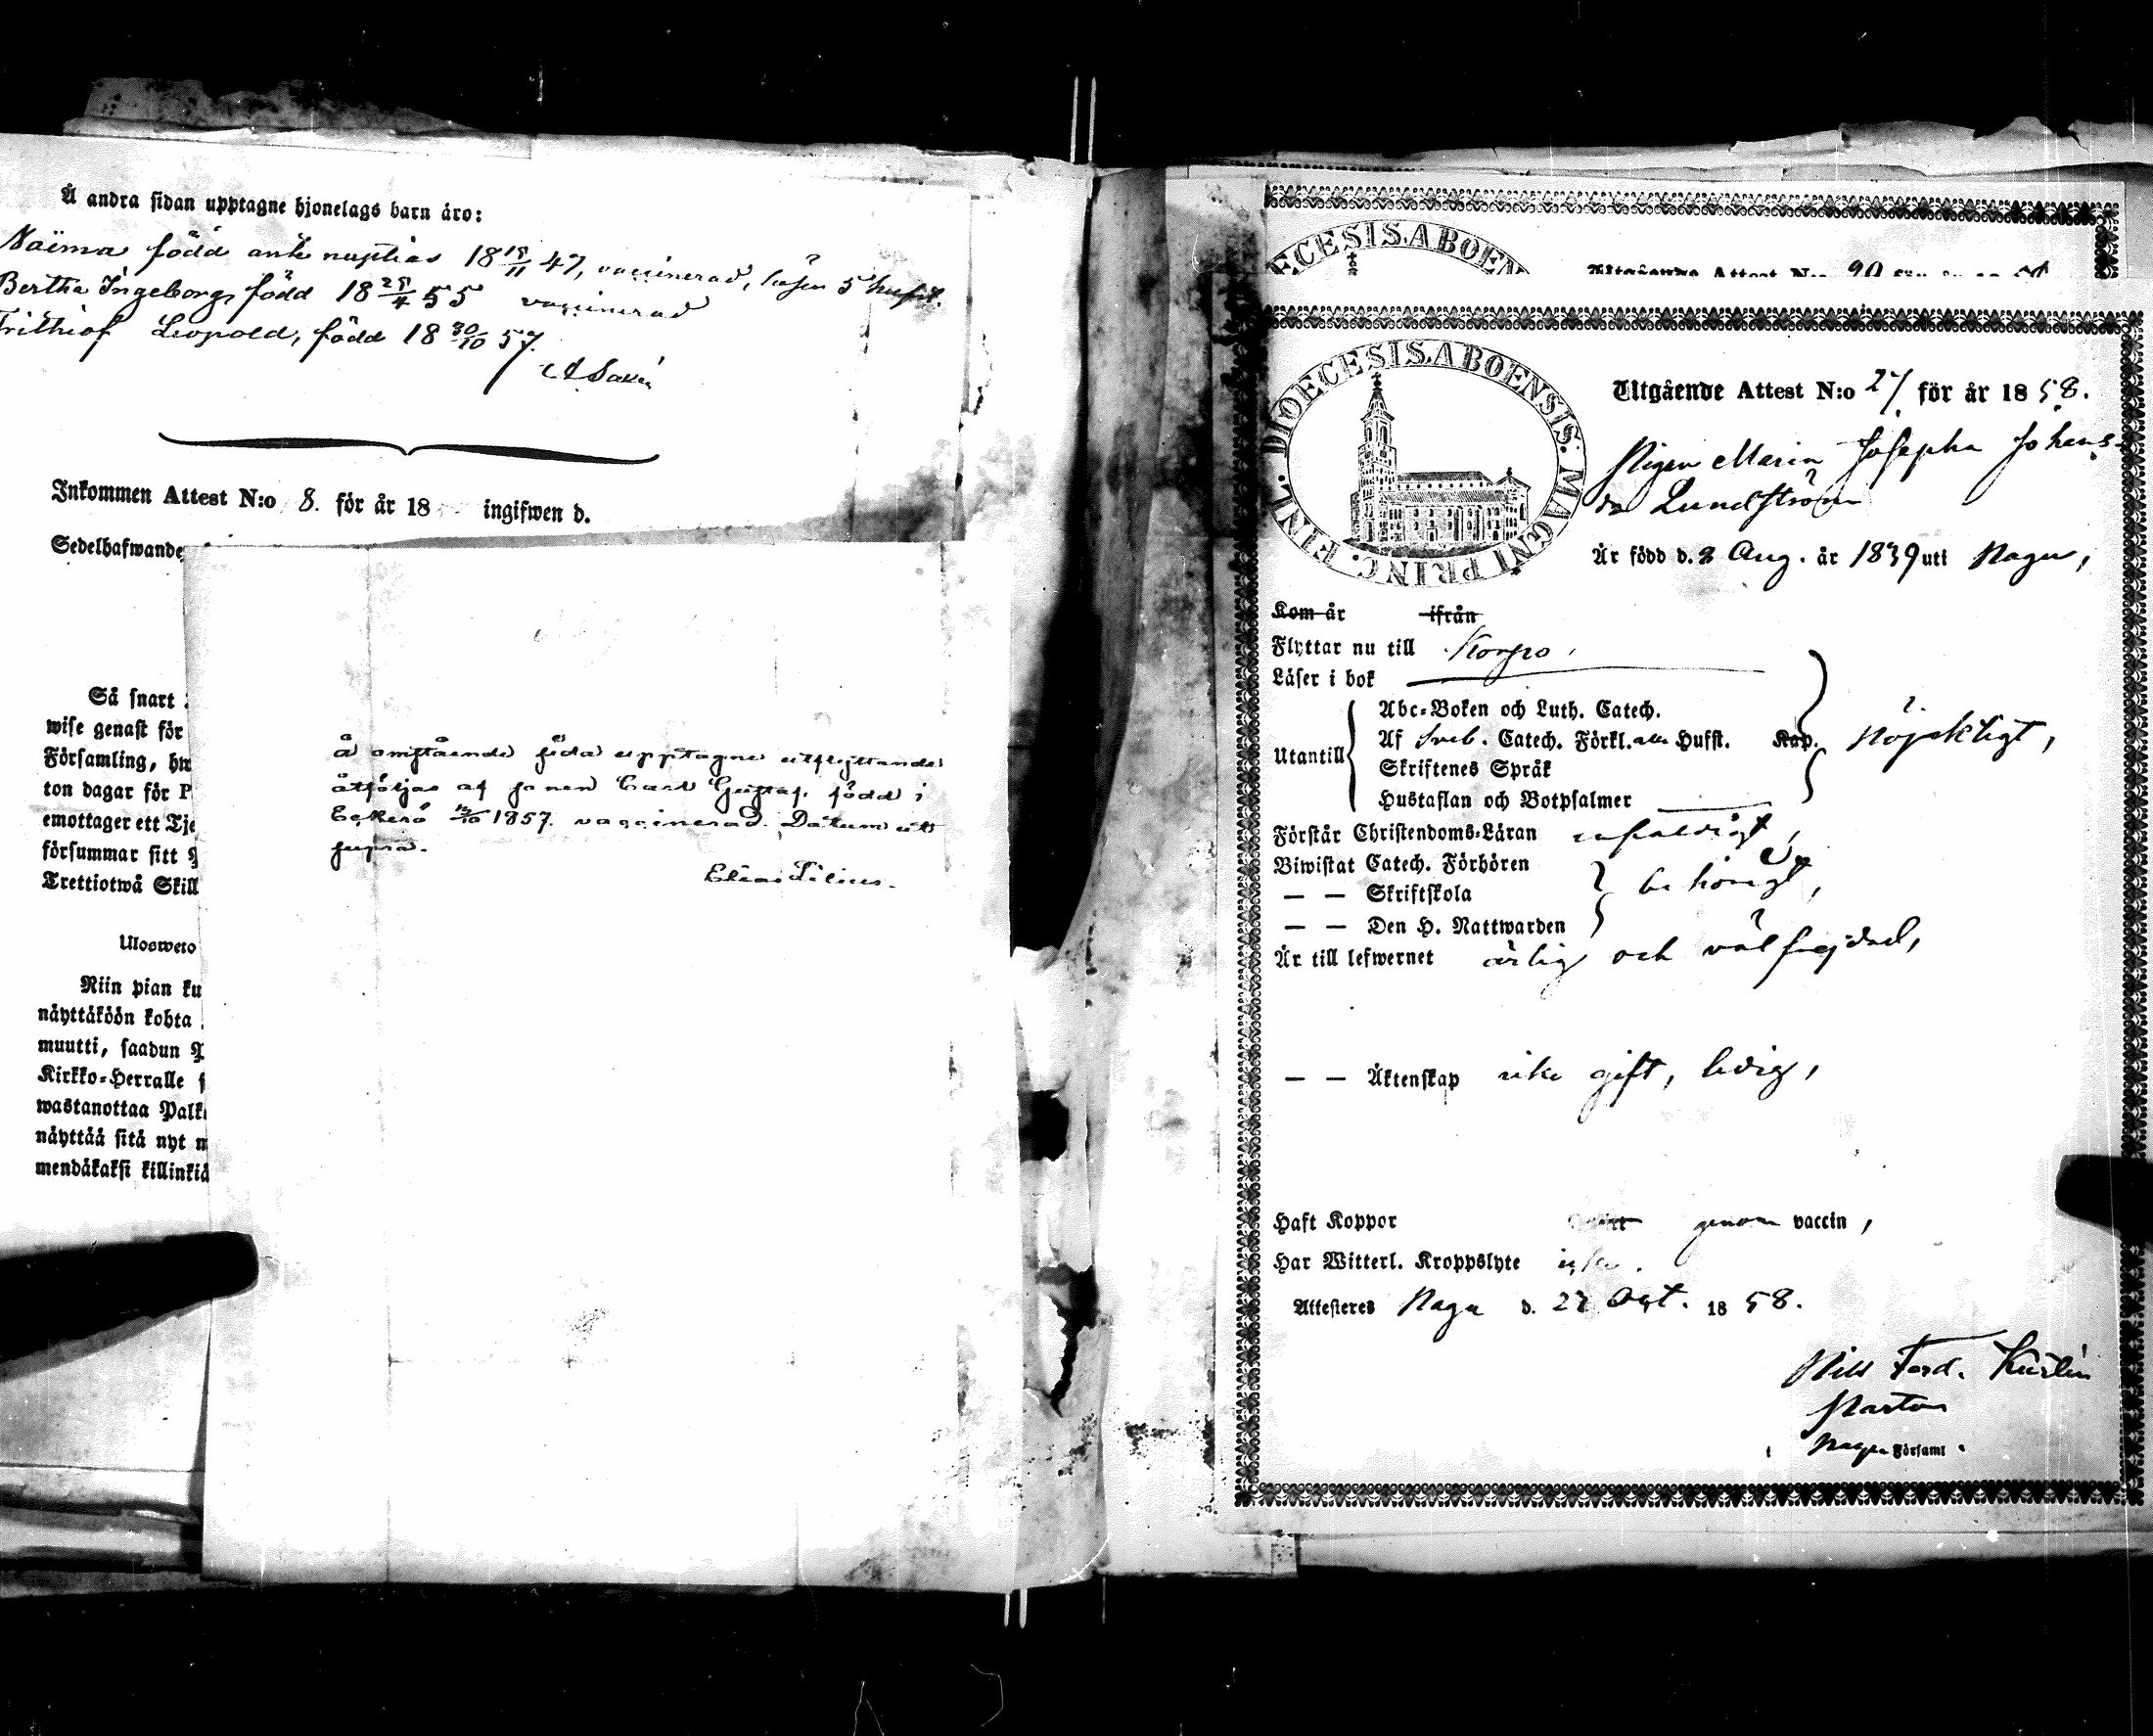 Å andra sidan upptagne hjonelags barn äro:
Naima född ante nuptias 18 18/11 47, vaccinerad, läser 5 hufst.
Bertha Ingeborg, född 18 28/4 55 vaccinerad
Frithiof Leopold, född 18 30/10 57.
Inkommen Attest N:o 8. för år 18 ingifwen d.
Sedelhafwande
Så snart
wise genast för
Församling, hw
ton dagar för P
emottager ett Tje
försummar sitt
Trettiotwå Skill
Ulosweto
Niin pian ku
näyttäköön kohta
muutti, saadun
Kirkko-Herralle s
wastanottaa Palk
näyttää sitä nyt m
mendäkaksi killinkiä
å omstående sida upptagne utflyttande
åtföljas af sonen Carl Gustaf, född i
Eckerö 1857. vaccinerad. Datum ut
supra.
Elias Lilius.
ECESIS. ABOEN
Utgående Attest N:o 90 för år 18 58
DIOECESIS. ABOENSIS. MAGNI PRINC. FINL.
Utgående Attest N:o 27 för år 18 58.
Pigan Maria Josepha Johans-
dr Lundström
Är född d. 8 Aug. år 1839 uti Nagu,
Kom år ifrån
Flyttar nu till Korpo,
Läser i bok
Abc-Boken och Luth. Catech.
Utantill Af Sveb. Catech. Förkl. alla Hufst. Kap. nöjaktigt,
Skriftenes Språk
Hustaflan och Botpsalmer
Förstår Christendoms-Läran enfaldigt,
Biwistat Catech. Förhören
— — Skriftskola behörigt,
— — Den H. Nattwarden
Är till lefwernet ärlig och välfrejdad,
— — Äktenskap icke gift, ledig,
Haft Koppor genom vaccin,
Har Witterl. Kroppslyte icke.
Attesteras Nagu d. 27 Oct. 18 58.
Nils Ferd.
Pastor
Nagu Församl.